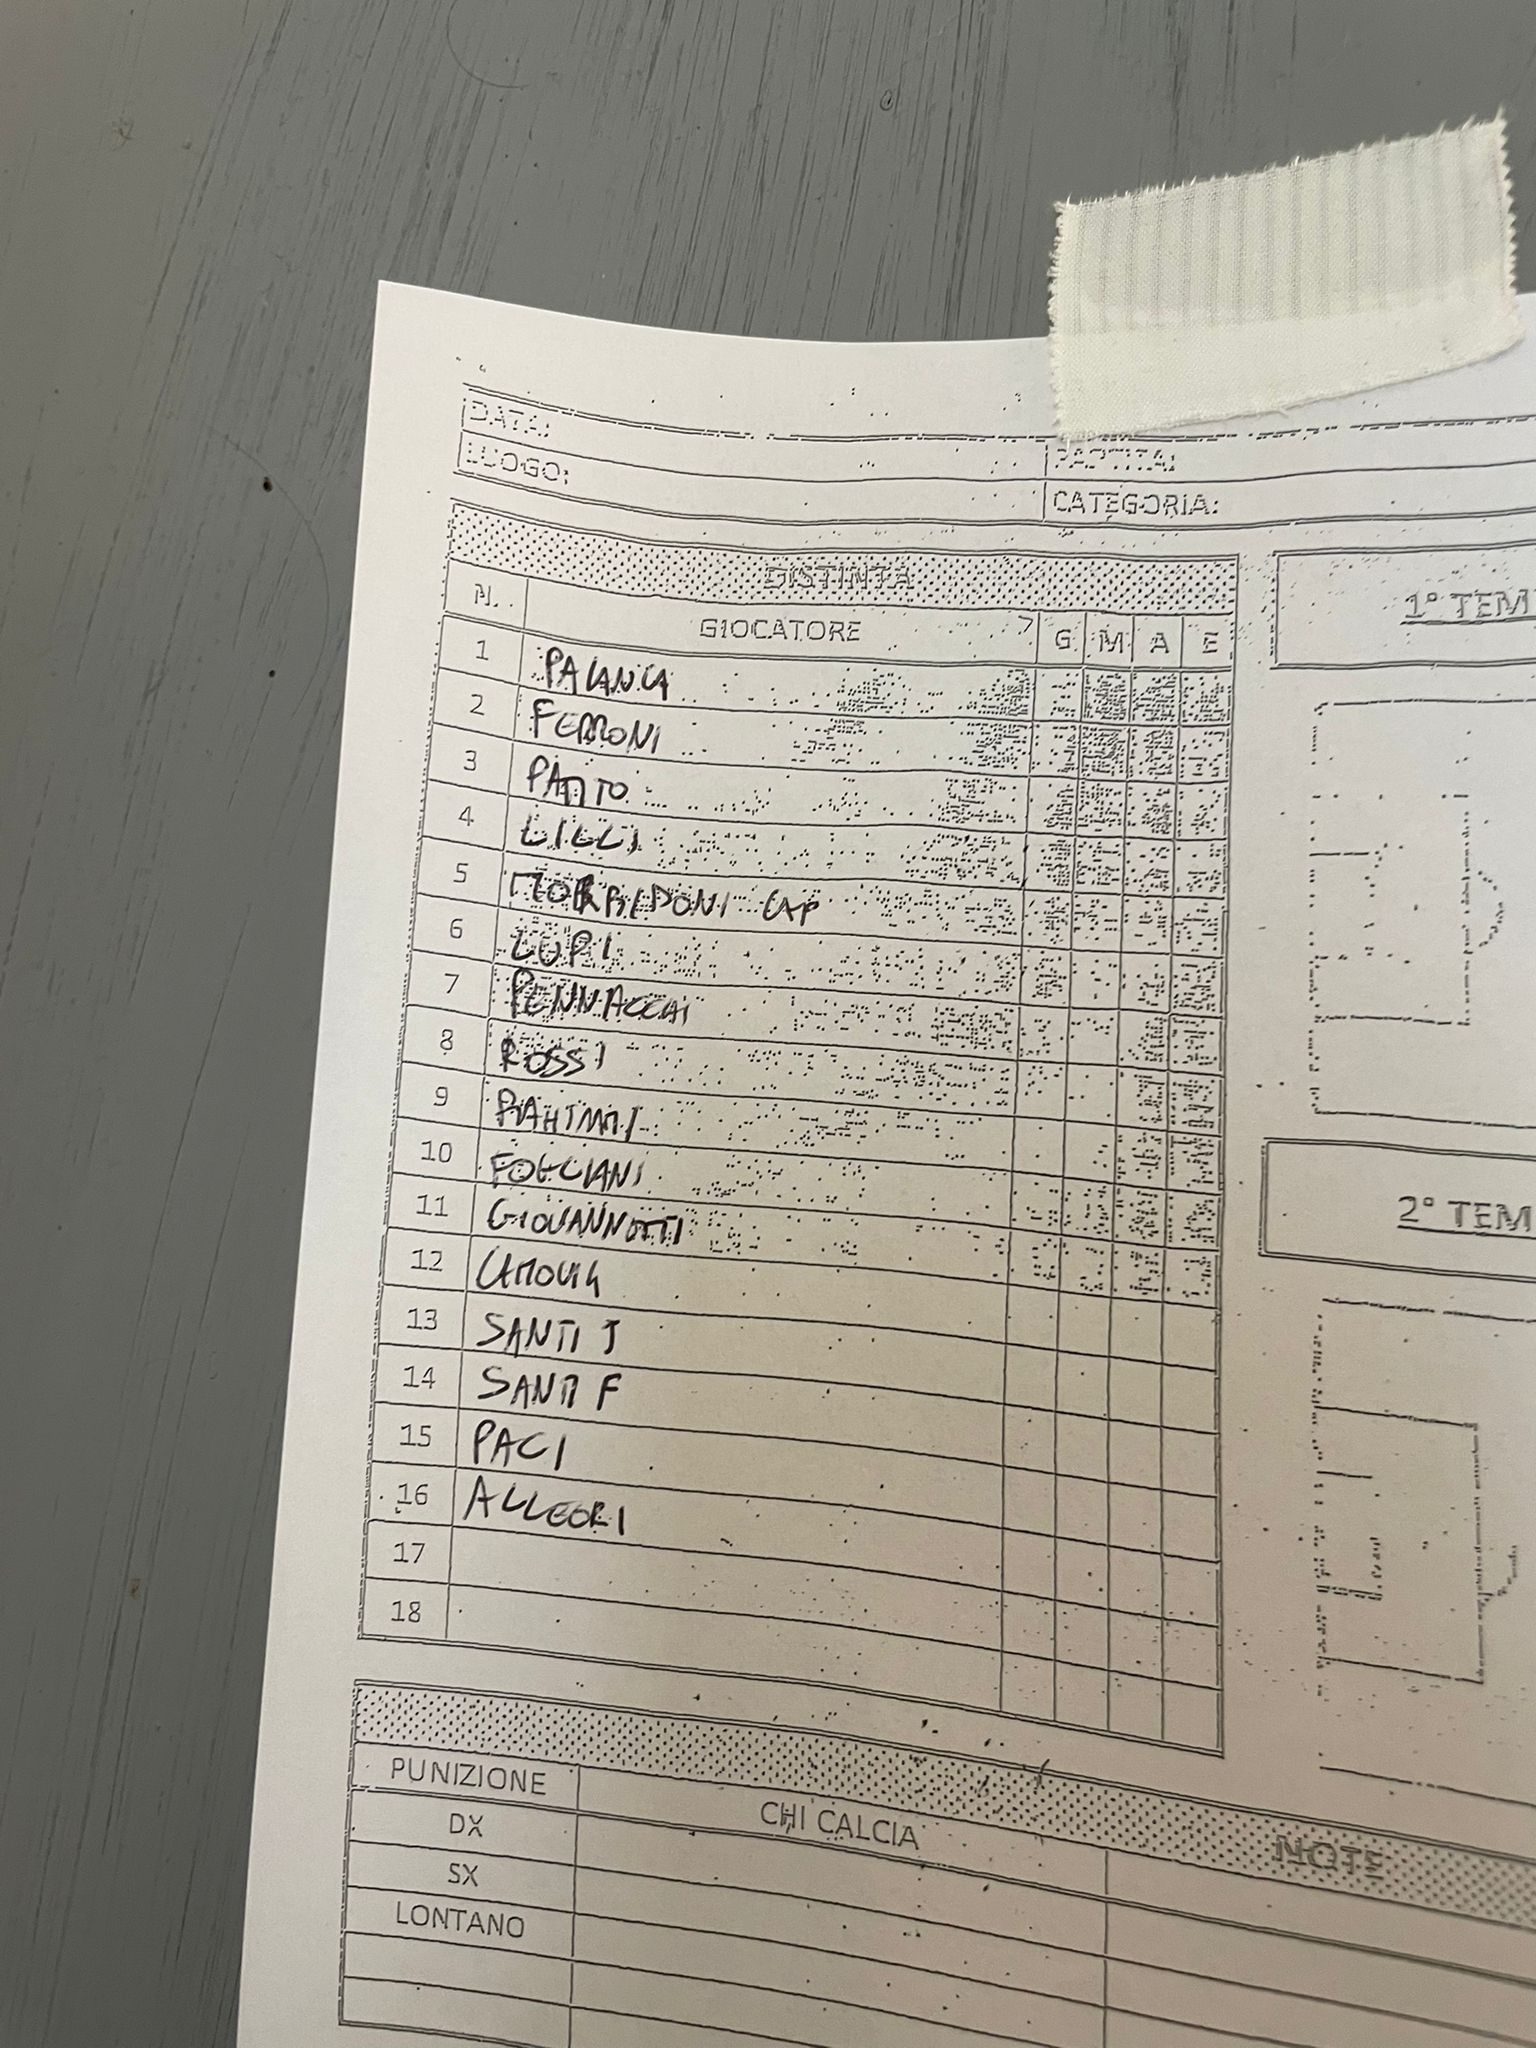 DATA:
PARTITA:
LUOGO:
CATEGORIA:
DISTINTA
N. GIOCATORE G M A E
1 PALANCA
2 FERRONI
3
4 LILLI
5 MORRIDONI CAP
6 LUPI
7 PENNACCHI
8 ROSSI
9
10 FOGLIANI
11 GIOVANNOTTI
12
13 SANTI J
14 SANTI F
15 PACI
16 ALLEGRI
17
18
1° TEM
2° TEM
PUNIZIONE CHI CALCIA NOTE
DX
SX
LONTANO